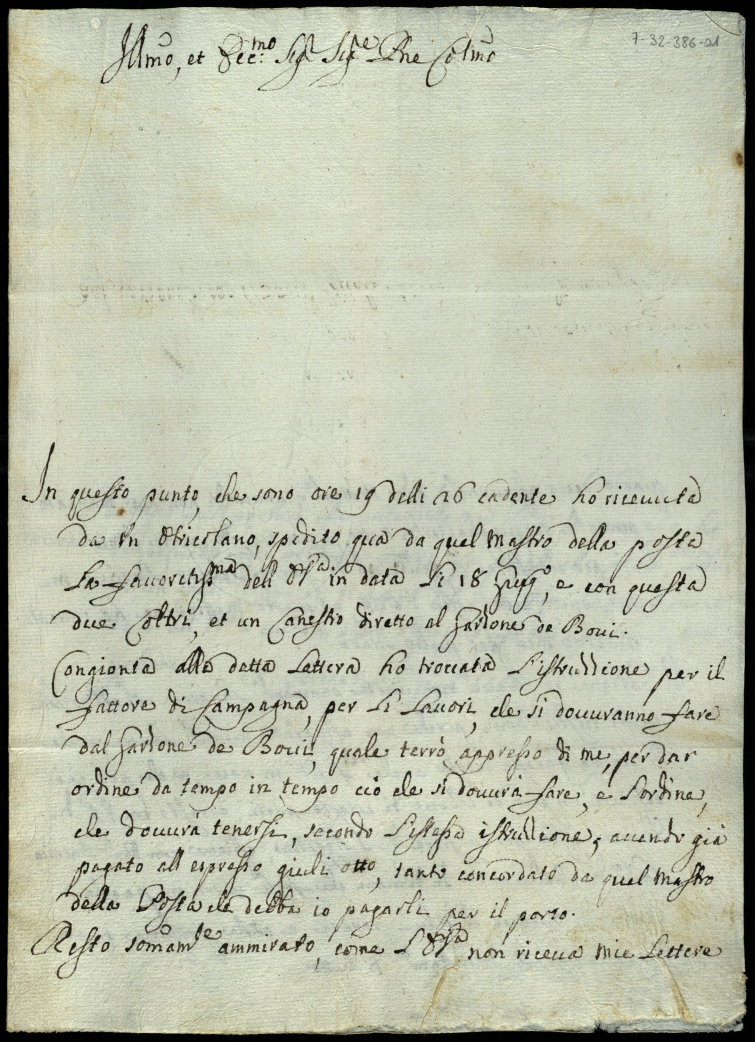 7-32-386-01
Illmo, et Ecc:mo Sigr Sigre Pne Colmo
In questo punto, che sono ore 19 delli 26 cadente ho ricevuta
da un Otricolano, spedito qua da quel Mastro della posta
La favoretissma dell' V.Sa in data Li 18 Giugo, e con questa
due Coltri, et un Canestro diretto al Garzone de Bovi.
Congionta alla detta Lettera ho trovata L'istruzzione per il
fattore di Campagna, per Li Lavori, che si dovuranno fare
dal Garzone de Bovi, quale terrò appresso di me, per dar
ordine da tempo in tempo ciò che si dovurà fare, e L'ordine,
che dovurà tenersi, secondo L'istessa istruzzione, avendo già
pagato all'espresso giulii otto, tanto concordato da quel Mastro
della Posta che debba io pagarli per il porto.
Resto somamte ammirato, come L'V.Sa non riceva mie Lettere